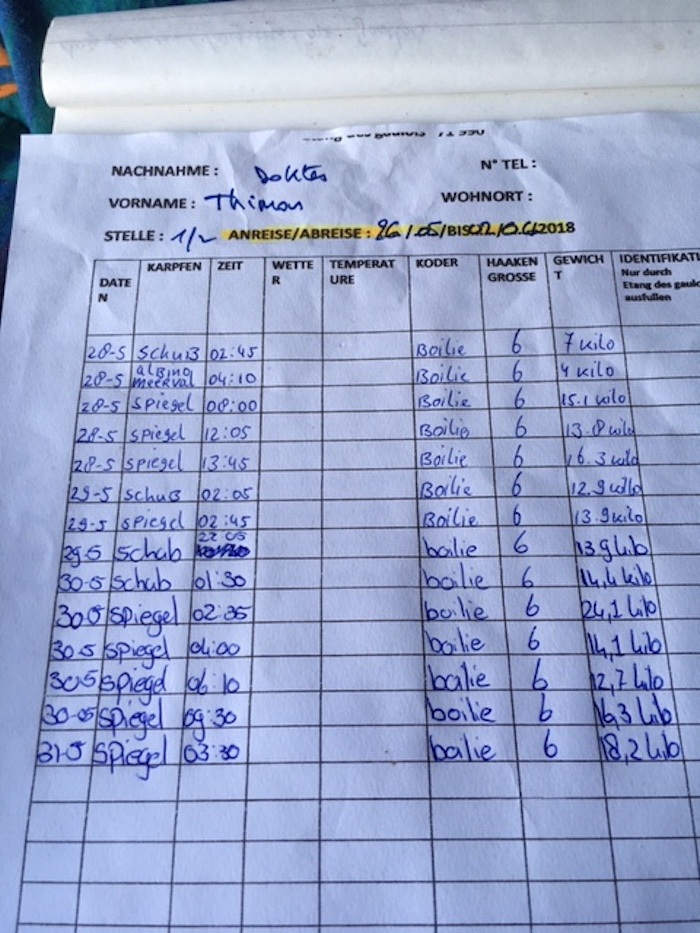 NACHNAHME : Dokter N° TEL :
VORNAME : Thimon WOHNORT :
STELLE : 1/2 ANREISE/ABREISE : 26/05/BIS 02/06/2018
DATEN KARPFEN ZEIT WETTER TEMPERATURE KODER HAAKEN GROSSE GEWICHT IDENTIFIKATI
Nur durch
Etang des gaulo
ausfullen
28-5 Schub 02:45 Boilie 6 7 kilo
28-5 albino meerval 04:10 Boilie 6 4 kilo
28-5 spiegel 08:00 Boilie 6 15.1 kilo
28-5 spiegel 12:05 Boilie 6 13.8 kilo
28-5 spiegel 13:45 Boilie 6 16.3 kilo
29-5 schub 02:05 Boilie 6 12.9 kilo
29-5 spiegel 02:45 Boilie 6 13.9 kilo
29-5 Schub 22:05 boilie 6 13,9 kilo
30-5 Schub 01:30 boilie 6 14,4 kilo
30-5 Spiegel 02:35 boilie 6 24,1 kilo
30-5 Spiegel 04:00 boilie 6 14,1 kilo
30-5 Spiegel 06:10 boilie 6 12,7 kilo
30-05 Spiegel 09:30 boilie 6 16,3 kilo
31-5 Spiegel 03:30 boilie 6 18,2 kilo